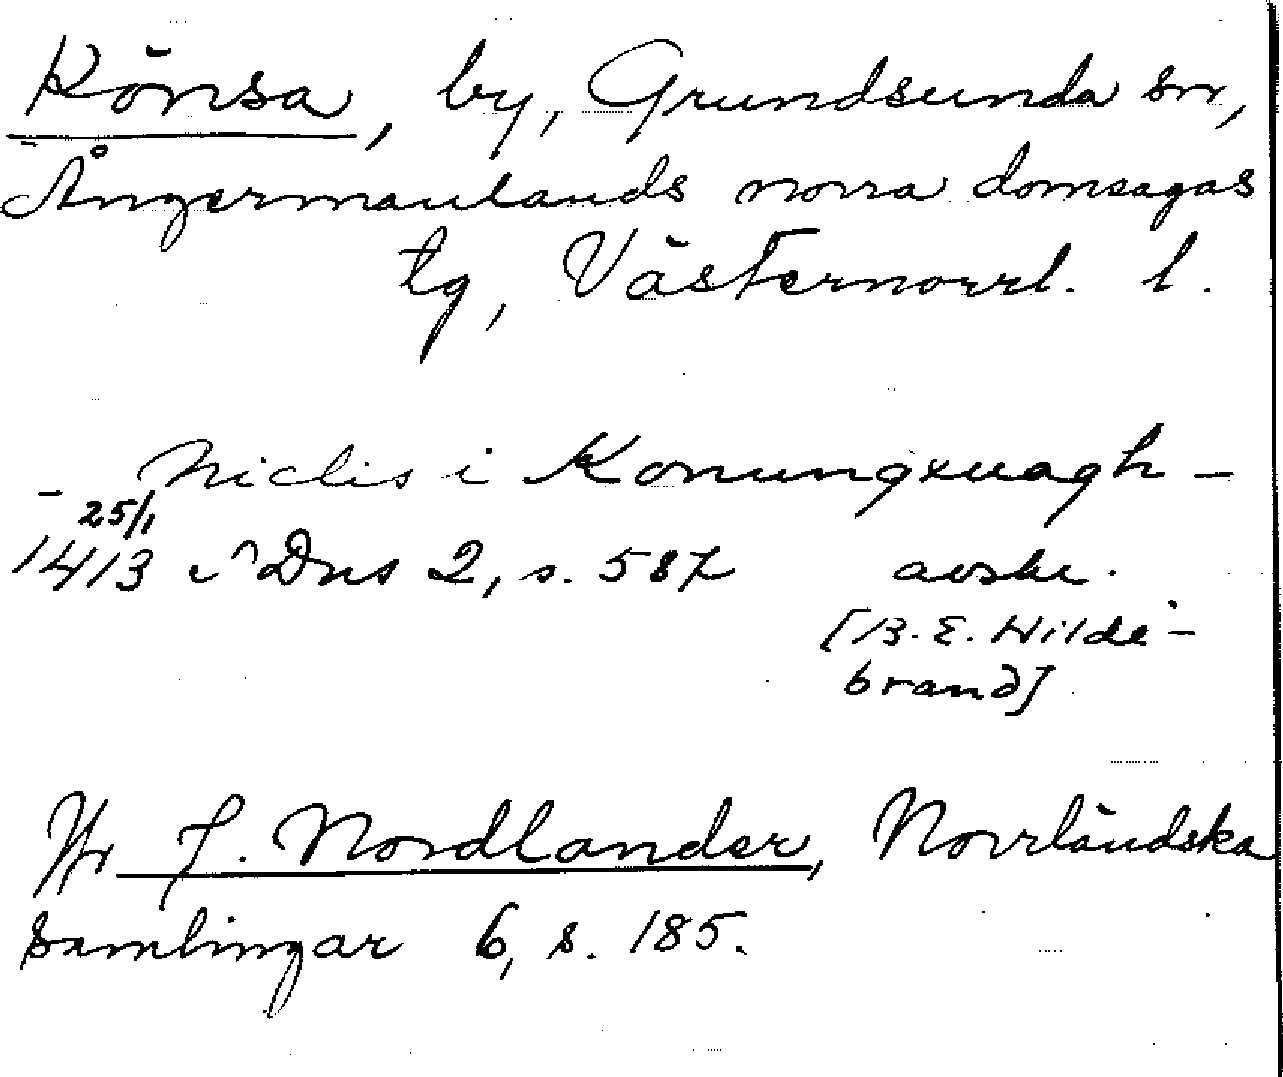 Könsa, by, Grundsunda sn,
Ångermanlands norra domsagas
tg, Västernorrl. l.
Niclis i Konungxuagh -
25/1
1413 Dns 2, s. 587 avskr.
[B. E. Hilde-
brand]
Jfr J. Nordlander, Norrländska
samlingar 6, s. 185.